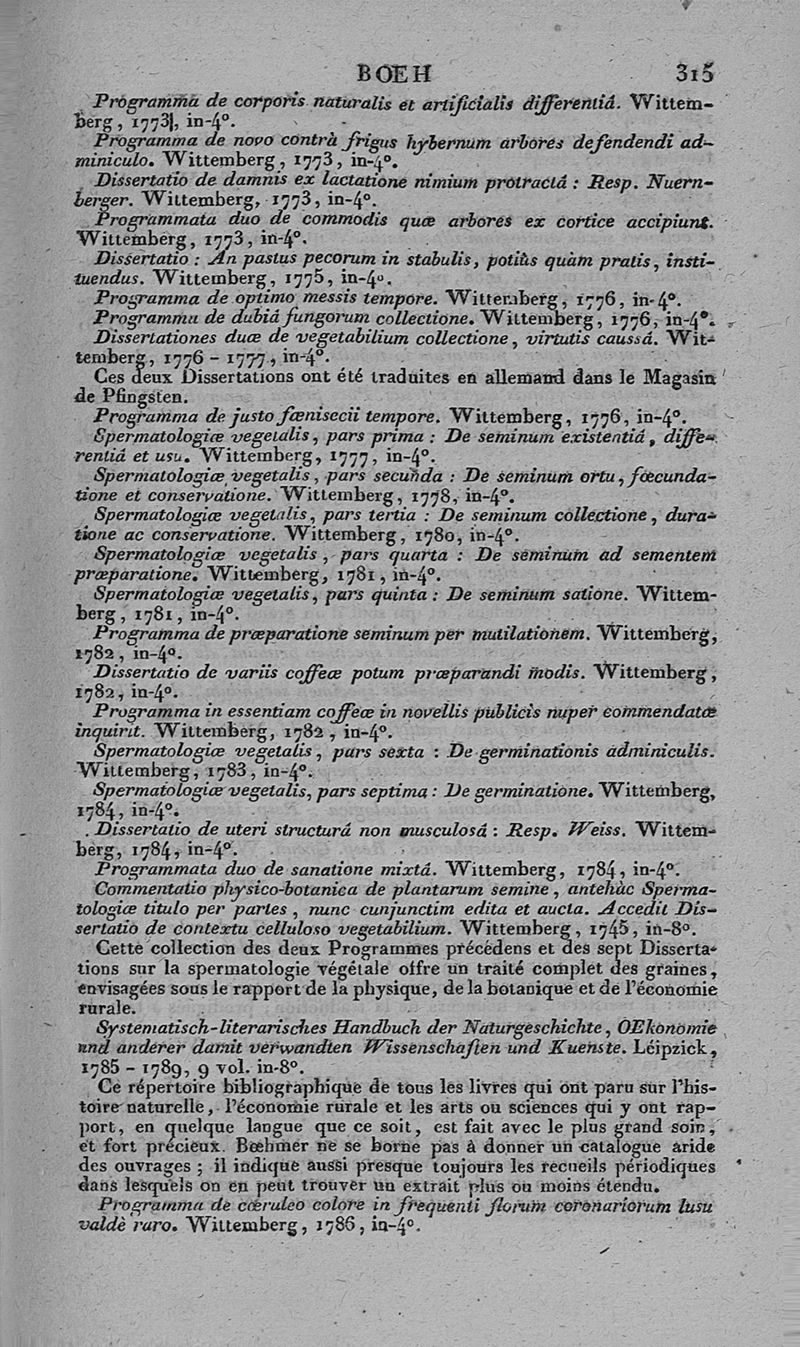 BOEH 315
Programma de corporis naturalis et artificialis differentiâ. Wittem-
berg, 1773, in-4°.
Programma de novo contrà frigus hybernum arbores defendendi ad-
miniculo. Wittemberg, 1773, in-4°.
Dissertatio de damnis ex lactatione nimium protractâ : Resp. Nuern-
berger. Wittemberg, 1773, in-4°.
Programmata duo de commodis quæ arbores ex cortice accipiunt.
Wittemberg, 1773, in-4°.
Dissertatio : An pastus pecorum in stabulis, potiùs quàm pratis, insti-
tuendus. Wittemberg, 1775, in-4°.
Programma de optimo messis tempore. Wittemberg, 1776, in-4°.
Programma de dubiâ fungorum collectione. Wittemberg, 1776, in-4°.
Dissertationes duæ de vegetabilium collectione, virtutis caussâ. Wit-
temberg, 1776 - 1777, in-4°.
Ces deux Dissertations ont été traduites en allemand dans le Magasin
de Pfingsten.
Programma de justo fœnisecii tempore. Wittemberg, 1776, in-4°.
Spermatologiæ vegetalis, pars prima : De seminum existentiâ, diffe-
rentiâ et usu. Wittemberg, 1777, in-4°.
Spermatologiæ vegetalis, pars secunda : De seminum ortu, fœcunda-
tione et conservatione. Wittemberg, 1778, in-4°.
Spermatologiæ vegetalis, pars tertia : De seminum collectione, dura-
tione ac conservatione. Wittemberg, 1780, in-4°.
Spermatologiæ vegetalis, pars quarta : De seminum ad sementem
præparatione. Wittemberg, 1781, in-4°.
Spermatologiæ vegetalis, pars quinta : De seminum satione. Wittem-
berg, 1781, in-4°.
Programma de præparatione seminum per mutilationem. Wittemberg,
1782, in-4°.
Dissertatio de variis coffeæ potum præparandi modis. Wittemberg,
1782, in-4°.
Programma in essentiam coffeæ in novellis publicis nuper commendatæ
inquirit. Wittemberg, 1782, in-4°.
Spermatologiæ vegetalis, pars sexta : De germinationis adminiculis.
Wittemberg, 1783, in-4°.
Spermatologiæ vegetalis, pars septima : De germinatione. Wittemberg,
1784, in-4°.
Dissertatio de uteri structurâ non musculosâ : Resp. Weiss. Wittem-
berg, 1784, in-4°.
Programmata duo de sanatione mixtâ. Wittemberg, 1784, in-4°.
Commentatio physico-botanica de plantarum semine, antehàc Sperma-
tologiæ titulo per partes, nunc cunjunctim edita et aucta. Accedit Dis-
sertatio de contextu celluloso vegetabilium. Wittemberg, 1745, in-8°.
Cette collection des deux Programmes précédens et des sept Disserta-
tions sur la spermatologie végétale offre un traité complet des graines,
envisagées sous le rapport de la physique, de la botanique et de l'économie
rurale.
Systematisch-literarisches Handbuch der Naturgeschichte, OEkonomie
und anderer damit verwandten Wissenschaften und Kuenste. Léipzick,
1785 - 1789, 9 vol. in-8°.
Ce répertoire bibliographique de tous les livres qui ont paru sur l'his-
toire naturelle, l'économie rurale et les arts ou sciences qui y ont rap-
port, en quelque langue que ce soit, est fait avec le plus grand soin,
et fort précieux. Bœhmer ne se borne pas à donner un catalogue aride
des ouvrages ; il indique aussi presque toujours les recueils périodiques
dans lesquels on en peut trouver un extrait plus ou moins étendu.
Programma de cœruleo colore in frequenti florum coronariorum lusu
valdè raro. Wittemberg, 1786, in-4°.